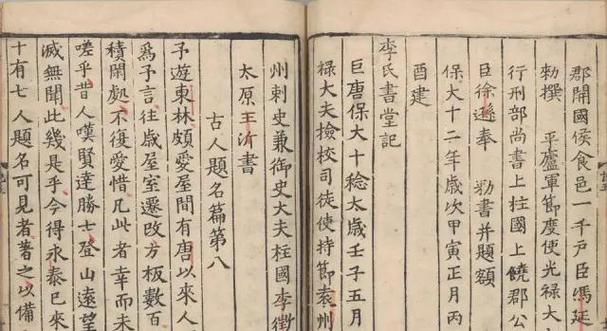 郡開國侯食邑一千户臣馮延
勑撰　平廬軍節度使光禄大
行刑部尚書上柱國上饒郡公
臣徐遜奉　勑書并題額
保大十二年歲次甲寅正月丙
酉建
李氏書堂記
巨唐保大十稔太歲壬子五月
禄大夫檢校司徒使持節袁州
州刺史兼御史大夫柱國李徵
太原王沂書
古人題名篇第八
予遊東林頗愛屋間有唐以來人
爲予言往歲屋室遷改方板數百
積閑處不復愛惜凡此者幸而未
嗟乎昔人嘆賢達勝士登山遠望
滅無聞此幾是乎今得永泰已來
十有七人題名可見者著之以備